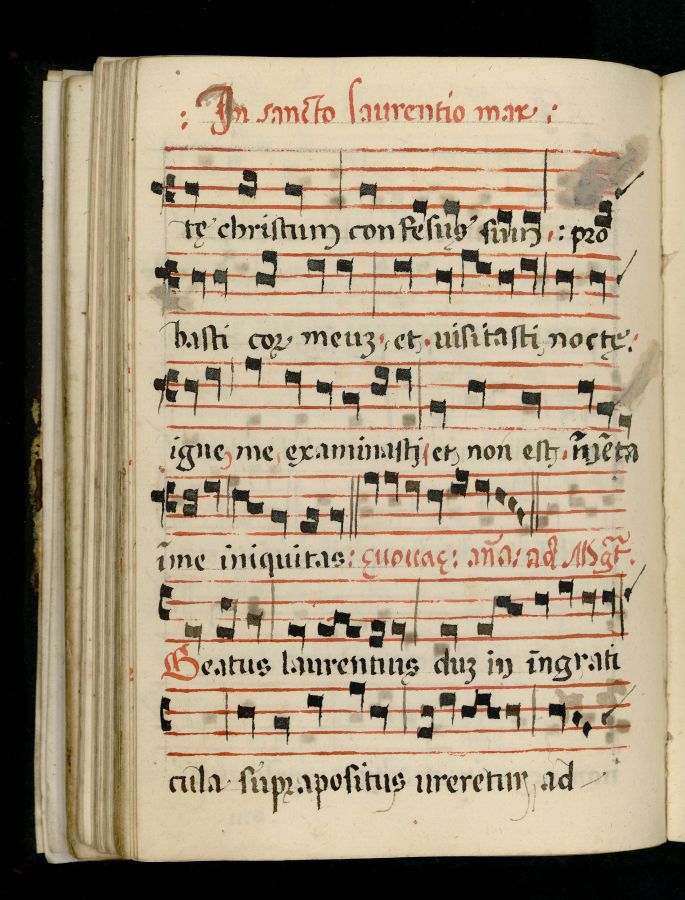 : In sancto laurentio mar :
tę christum confesus sum : pro
basti cor meuz, et, visitasti, noctę.
igne, me, examinasti, et, non est, inventa
in me iniquitas: euouae: aña: ad Mgt.
Beatus laurentius duz in ingrati
cula suprapositus ureretur, ad